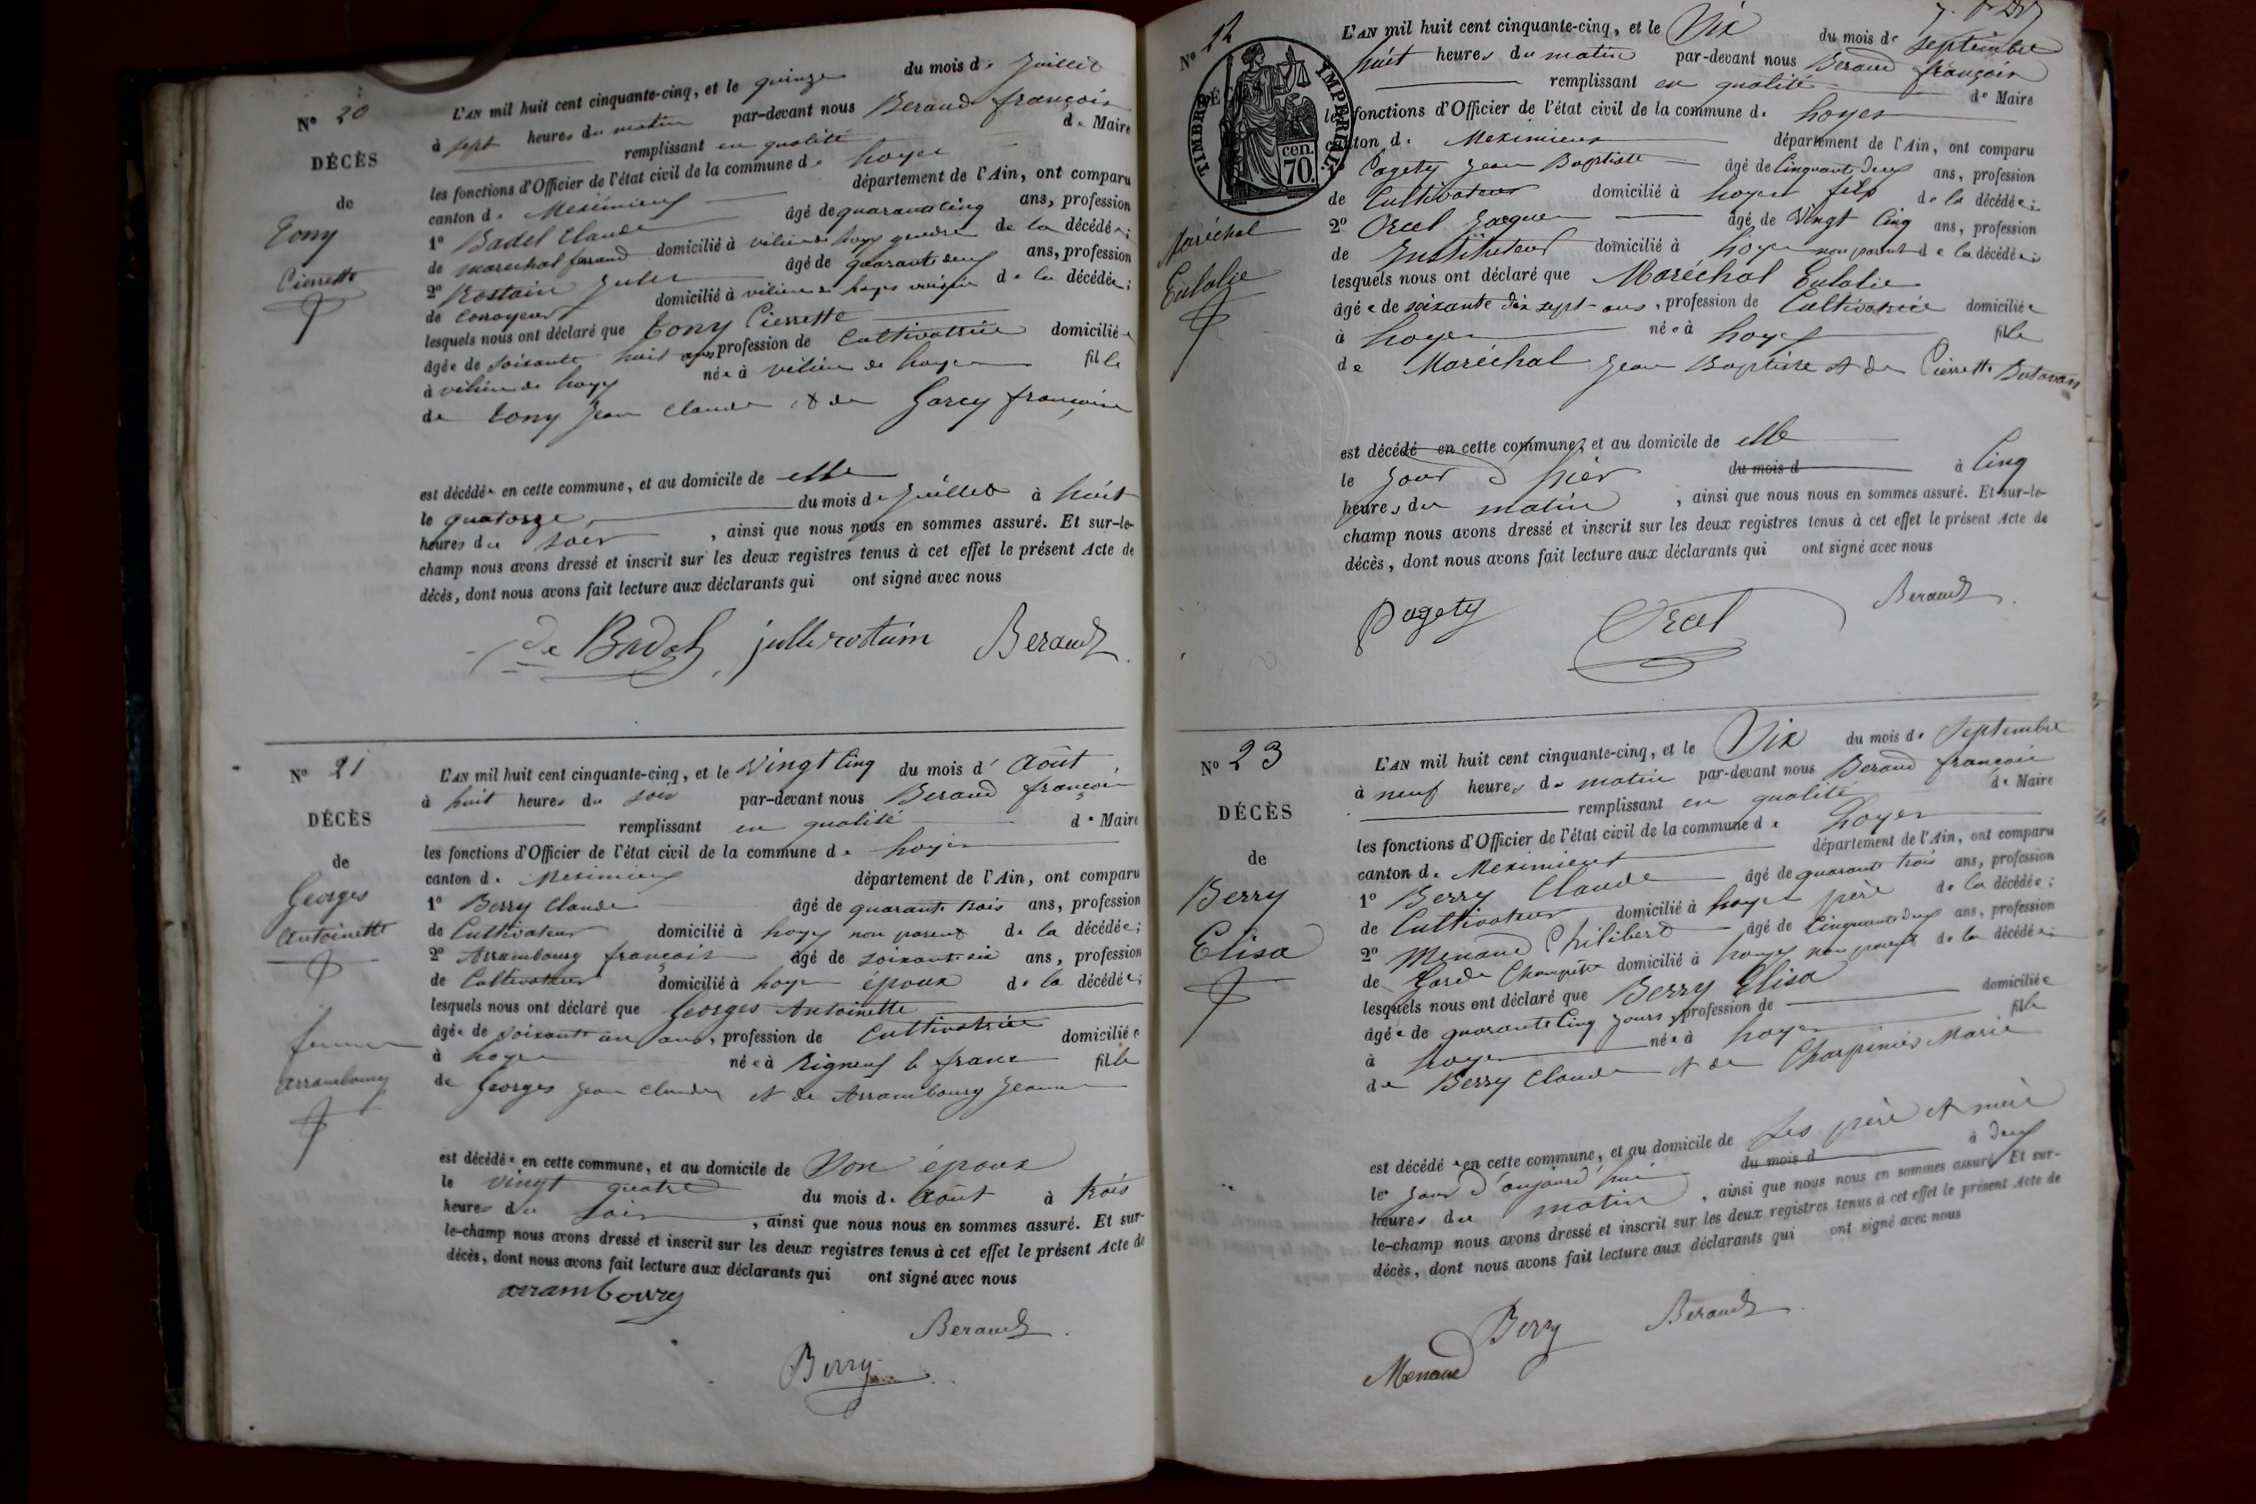 N° 20
DÉCÈS
de
Tony
Pierrette
L'AN mil huit cent cinquante-cinq, et le quinze du mois de Juillet
à sept heures du matin par-devant nous Beraud françois
remplissant en qualité de Maire
les fonctions d'Officier de l'état civil de la commune de Loyes
canton de Meximieux département de l'Ain, ont comparu
1° Badel Claude âgé de quarante cinq ans, profession
de marechal ferrand domicilié à vilieu de loyes gendre de la décédée;
2° Rostain Jules âgé de quarante deux ans, profession
de domicilié à vilieu de loyes voisin de la décédée;
lesquels nous ont déclaré que Tony Pierrette
âgée de soixante huit ans, profession de Cultivatrice domiciliée
à vilieu de loyes née à vilieu de loyes fille
de Tony Jean Claude et de Garcy françoise
est décédée en cette commune, et au domicile de elle
le quatorze, du mois de Juillet à huit
heures du soir, ainsi que nous nous en sommes assuré. Et sur-le-
champ nous avons dressé et inscrit sur les deux registres tenus à cet effet le présent Acte de
décès, dont nous avons fait lecture aux déclarants qui ont signé avec nous
de Badel julles rostain Beraud
N° 21
DÉCÈS
de
Georges
Antoinette
femme
arrambourg
L'AN mil huit cent cinquante-cinq, et le Vingt Cinq du mois d' Août
à huit heures du soir par-devant nous Beraud françois
remplissant en qualité de Maire
les fonctions d'Officier de l'état civil de la commune de loyes
canton de Meximieux département de l'Ain, ont comparu
1° Berry Claude âgé de quarante trois ans, profession
de Cultivateur domicilié à loyes non parent de la décédée;
2° Arrambourg françois âgé de soixante six ans, profession
de Cultivateur domicilié à loyes époux de la décédée;
lesquels nous ont déclaré que Georges Antoinette
âgée de soixante un ans, profession de Cultivatrice domiciliée
à loyes née à Rigneux le franc fille
de Georges Jean Claude et de Arrambourg Jeanne
est décédée en cette commune, et au domicile de Son époux
le vingt quatre du mois de Août à trois
heures du soir, ainsi que nous nous en sommes assuré. Et sur-
le-champ nous avons dressé et inscrit sur les deux registres tenus à cet effet le présent Acte de
décès, dont nous avons fait lecture aux déclarants qui ont signé avec nous
arrambourg
Beraud
Berry
N° 22
TIMBRE IMPÉRIAL
cen.
70
Maréchal
Eulalie
L'AN mil huit cent cinquante-cinq, et le Six du mois de Septembre
huit heures du matin par-devant nous Beraud françois
remplissant en qualité de Maire
les fonctions d'Officier de l'état civil de la commune de loyes
canton de Meximieux département de l'Ain, ont comparu
Pagety Jean Baptiste âgé de Cinquante deux ans, profession
de Cultivateur domicilié à loyes fils de la décédée;
2° Orcel Jacques âgé de Vingt Cinq ans, profession
de Instituteur domicilié à loyes non parent de la décédée;
lesquels nous ont déclaré que Maréchal Eulalie
âgée de soixante dix sept ans, profession de Cultivatrice domiciliée
à loyes née à loyes fille
de Maréchal Jean Baptiste et de Pierrette
est décédé en cette commune, et au domicile de elle
le Jour d'hier du mois d à Cinq
heures du matin, ainsi que nous nous en sommes assuré. Et sur-le-
champ nous avons dressé et inscrit sur les deux registres tenus à cet effet le présent Acte de
décès, dont nous avons fait lecture aux déclarants qui ont signé avec nous
Pagety Orcel Beraud
N° 23
DÉCÈS
de
Berry
Elisa
L'AN mil huit cent cinquante-cinq, et le Six du mois de Septembre
à neuf heures du matin par-devant nous Beraud françois
remplissant en qualité de Maire
les fonctions d'Officier de l'état civil de la commune de loyes
canton de Meximieux département de l'Ain, ont comparu
1° Berry Claude âgé de quarante trois ans, profession
de Cultivateur domicilié à loyes père de la décédée;
2° Menand Philibert âgé de Cinquante deux ans, profession
de Garde Champêtre domicilié à loyes non parent de la décédée;
lesquels nous ont déclaré que Berry Elisa
âgée de quarante Cinq jours, profession de domiciliée
à loyes née à loyes fille
de Berry Claude et de Charpinier Marie
est décédée en cette commune, et au domicile de Ses père et mère
le jour d'aujourd'hui du mois d à deux
heures du matin, ainsi que nous nous en sommes assuré. Et sur-
le-champ nous avons dressé et inscrit sur les deux registres tenus à cet effet le présent Acte de
décès, dont nous avons fait lecture aux déclarants qui ont signé avec nous
Berry Beraud
Menand